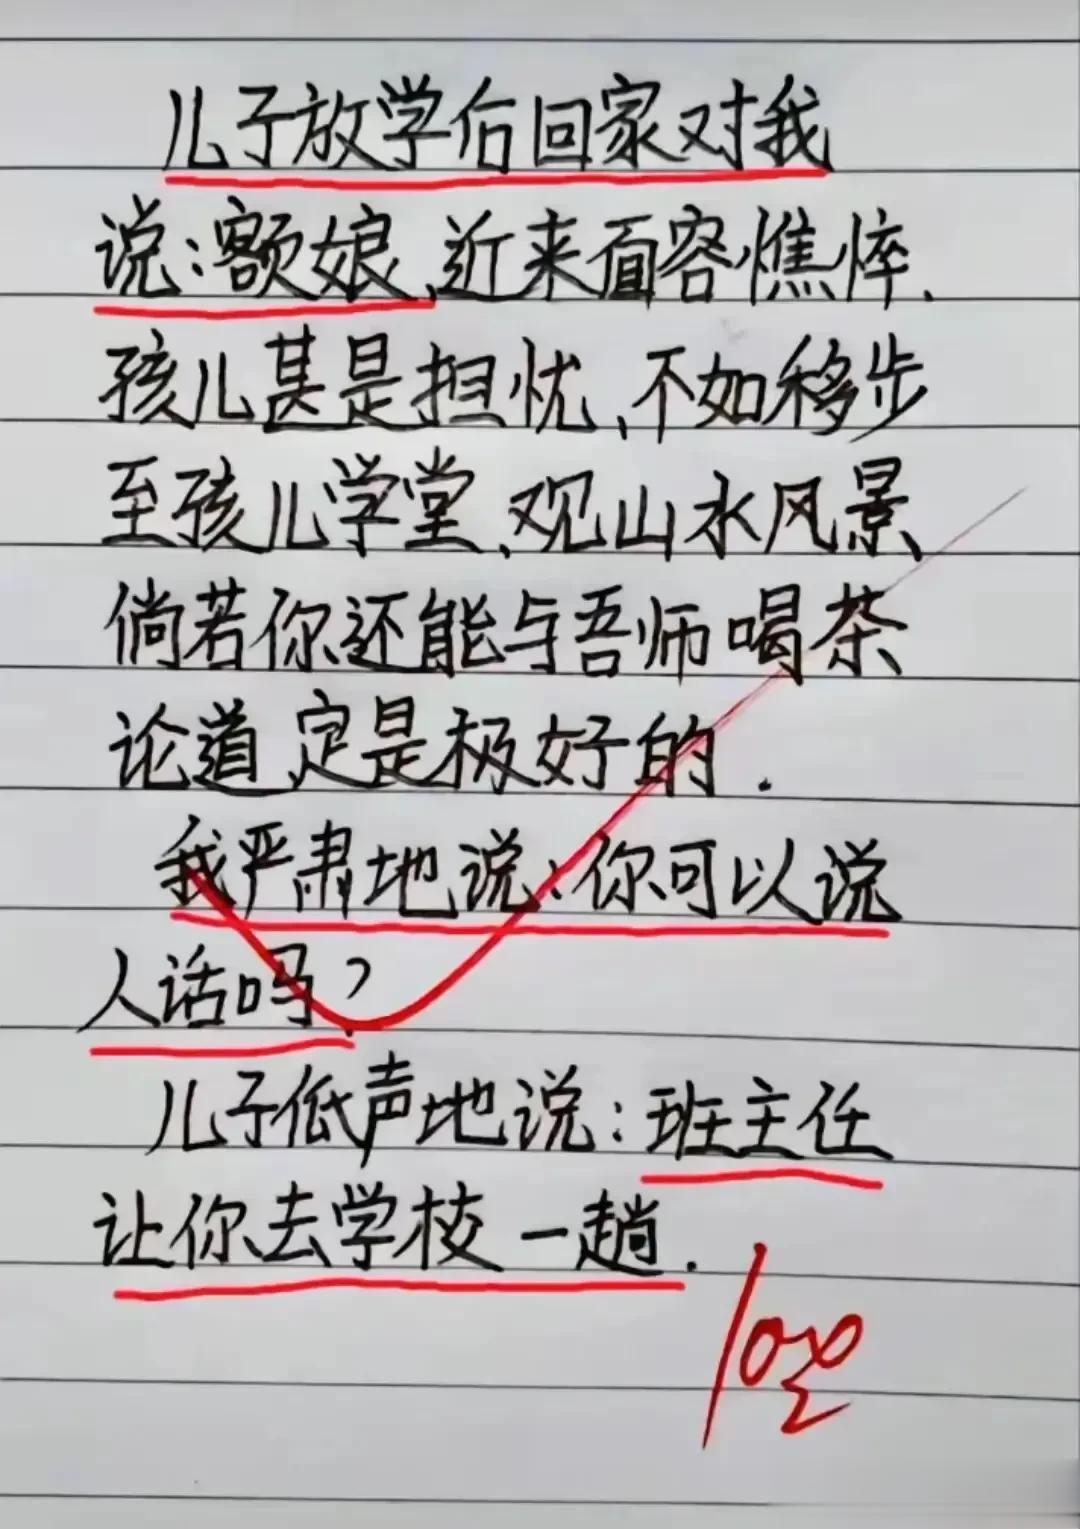 儿子放学后回家对我
说:额娘、近来面容憔悴.
孩儿甚是担忧、不如移步
至孩儿学堂、观山水风景、
倘若你还能与吾师喝茶
论道、定是极好的.
我严肃地说:你可以说
人话吗?
儿子低声地说:班主任
让你去学校一趟.
100